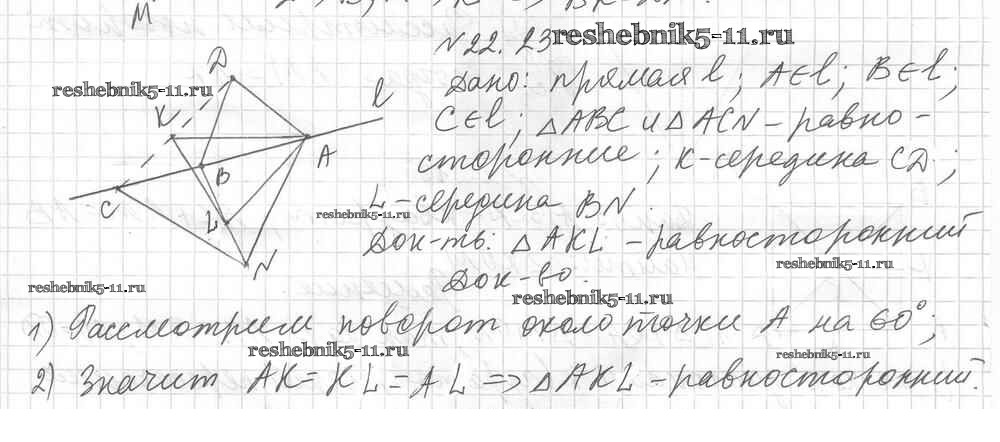 M
N 22. 23 reshebnik5-11.ru
Дано: прямая l; A∈l; B∈l;
reshebnik5-11.ru
C∈l; △ABC и △ACN - равно-
сторонние; K-середина CD;
L-середина BN.
reshebnik5-11.ru
Док-ть: △AKL - равносторонний
reshebnik5-11.ru
Док-во.
reshebnik5-11.ru
reshebnik5-11.ru
D
l
K
A
B
C
L
N
1) Рассмотрим поворот около точки A на 60°;
reshebnik5-11.ru
reshebnik5-11.ru
2) Значит AK = KL = AL => △AKL - равносторонний.